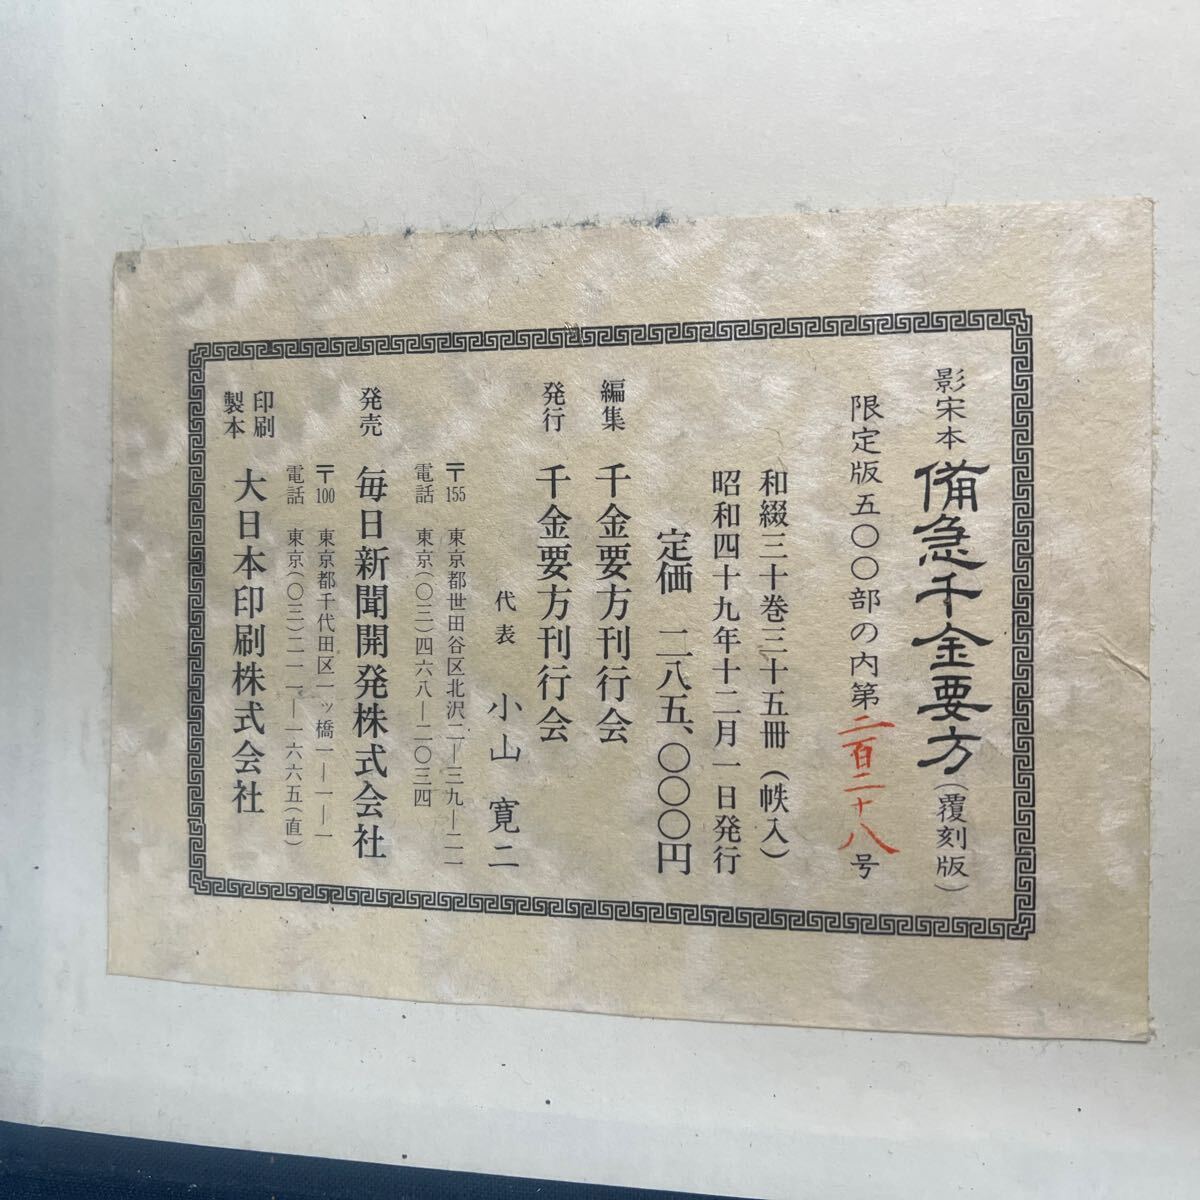 影宋本 備急千金要方(覆刻版)
限定版五〇〇部の内第二百二十八号
和綴三十巻三十五冊(帙入)
昭和四十九年十二月一日発行
定価 二八五、〇〇〇円
編集 千金要方刊行会
発行 千金要方刊行会
代表 小山寛二
〒155 東京都世田谷区北沢二―三九―二一
電話 東京(〇三)四六八―二〇三四
発売 毎日新聞開発株式会社
〒100 東京都千代田区一ッ橋一―一―一
電話 東京(〇三)二一一―一六六五(直)
印刷
製本 大日本印刷株式会社